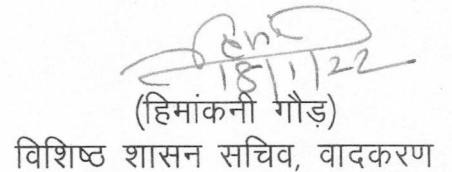 18/1/22
(हिमांकनी गौड़)
विशिष्ठ शासन सचिव, वादकरण